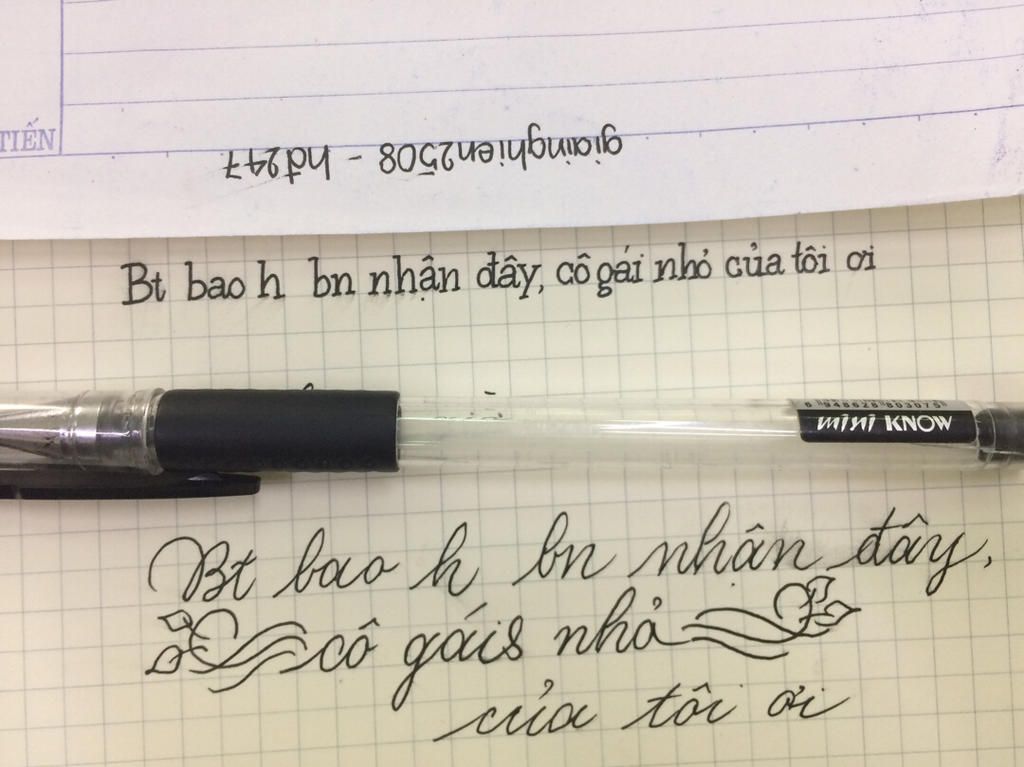 TIẾN
giainghien2508 - hđ247
Bt bao h bn nhận đây, cô gái nhỏ của tôi ơi
6 948628 803075
mini KNOW
Bt bao h bn nhận đây,
cô gáis nhỏ
của tôi ơi